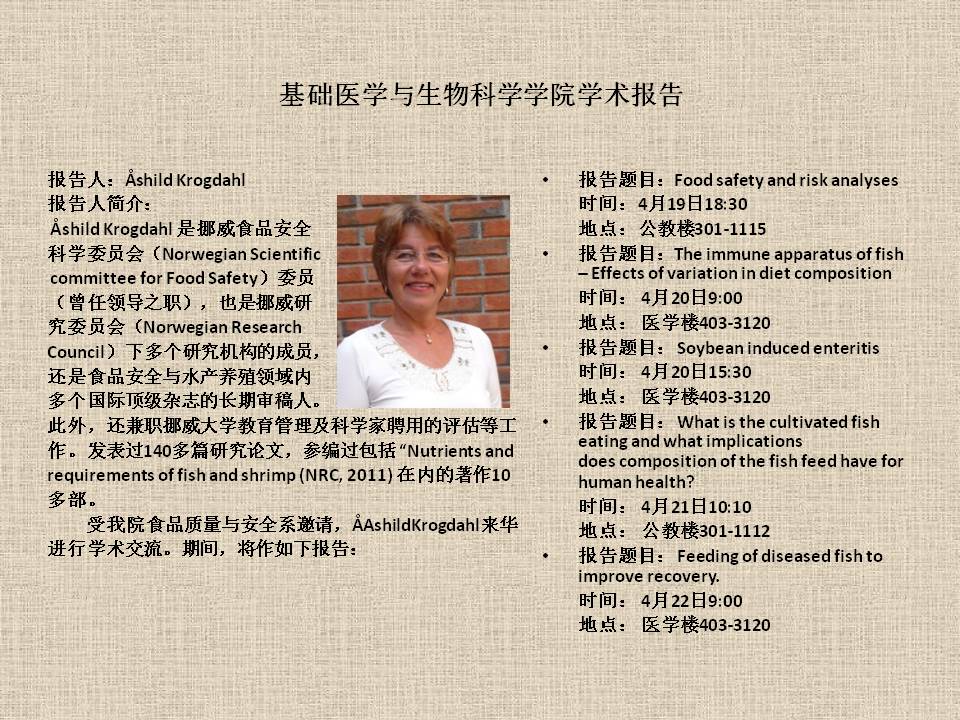 基础医学与生物科学学院学术报告
报告人：Åshild Krogdahl
报告人简介：
Åshild Krogdahl 是挪威食品安全
科学委员会（Norwegian Scientific
committee for Food Safety）委员
（曾任领导之职），也是挪威研
究委员会（Norwegian Research
Council）下多个研究机构的成员，
还是食品安全与水产养殖领域内
多个国际顶级杂志的长期审稿人。
此外，还兼职挪威大学教育管理及科学家聘用的评估等工
作。发表过140多篇研究论文，参编过包括 “Nutrients and
requirements of fish and shrimp (NRC, 2011) 在内的著作10
多部。
受我院食品质量与安全系邀请，ÅAshildKrogdahl来华
进行学术交流。期间，将作如下报告：
• 报告题目：Food safety and risk analyses
时间：4月19日18:30
地点：公教楼301-1115
• 报告题目：The immune apparatus of fish
– Effects of variation in diet composition
时间： 4月20日9:00
地点： 医学楼403-3120
• 报告题目： Soybean induced enteritis
时间： 4月20日15:30
地点： 医学楼403-3120
• 报告题目： What is the cultivated fish
eating and what implications
does composition of the fish feed have for
human health?
时间： 4月21日10:10
地点： 公教楼301-1112
• 报告题目： Feeding of diseased fish to
improve recovery.
时间： 4月22日9:00
地点： 医学楼403-3120